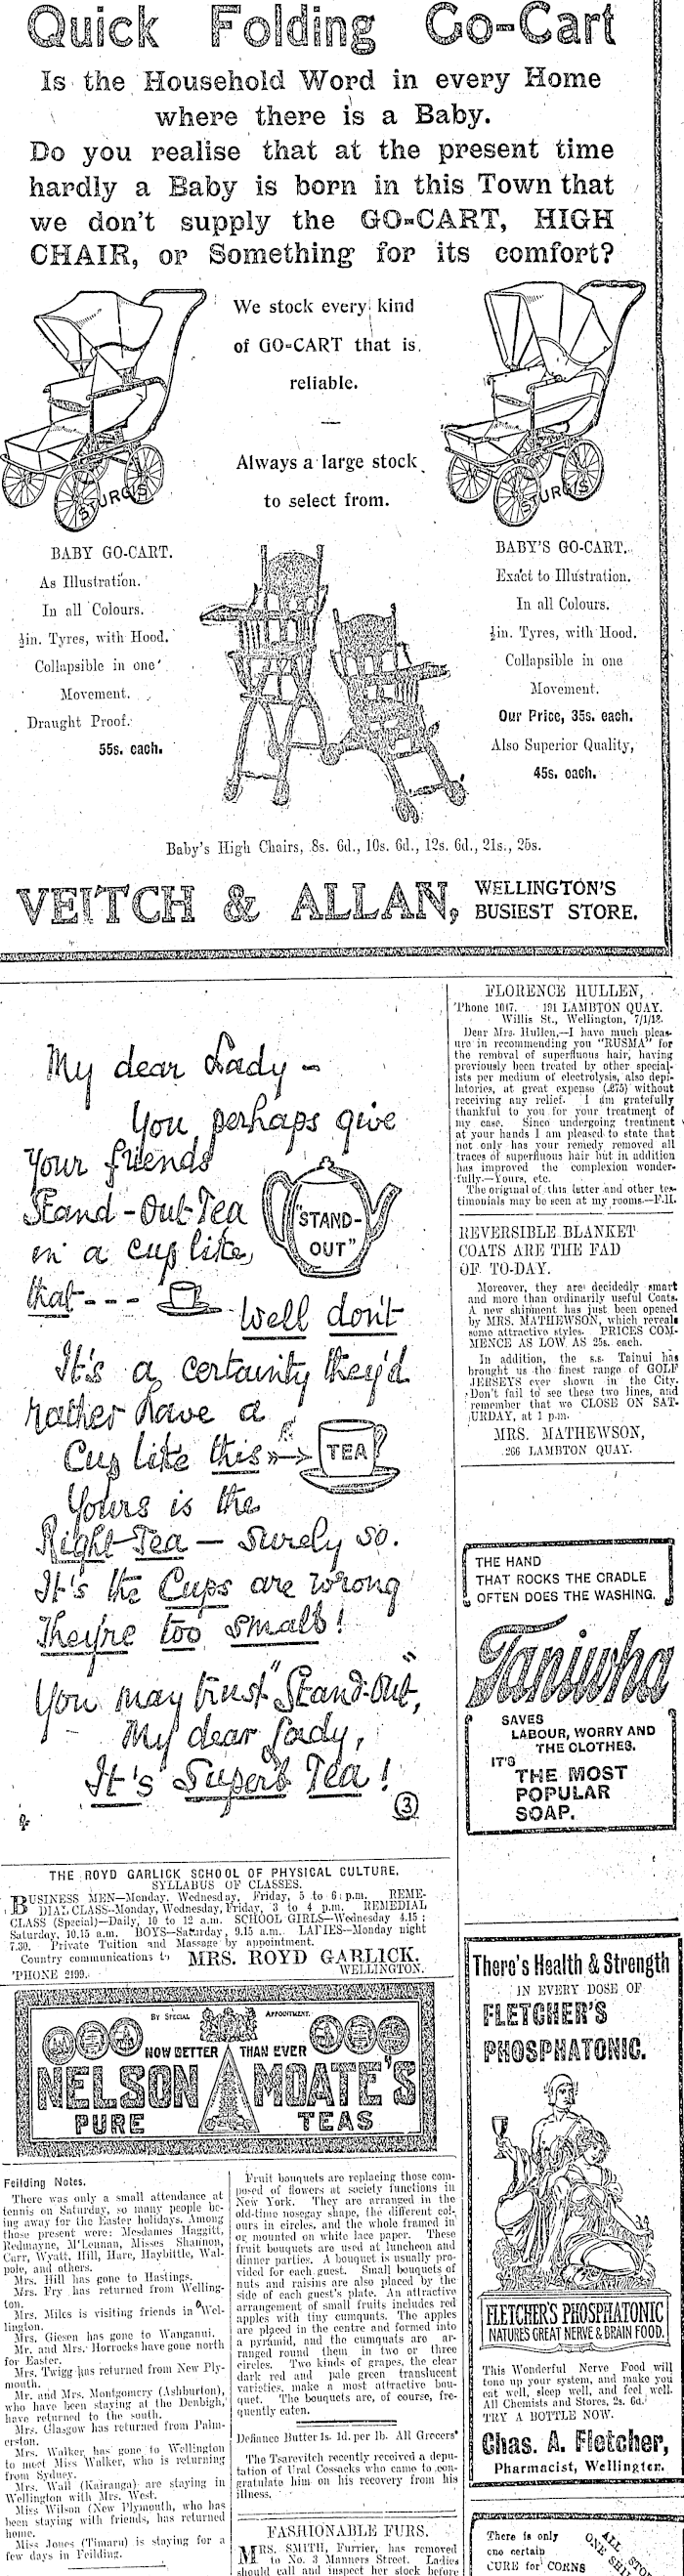 Quick Folding Go-Cart
Is the Household Word in every Home
where there is a Baby.
Do you realise that at the present time
hardly a Baby is born in this Town that
we don't supply the GO-CART, HIGH
CHAIR, or Something for its comfort?
We stock every kind
of GO-CART that is
reliable.
Always a large stock
to select from.
STURGIS
STURGIS
BABY GO-CART.
As Illustration.
In all Colours.
½in. Tyres, with Hood.
Collapsible in one
Movement.
Draught Proof.
55s. each.
BABY'S GO-CART.
Exact to Illustration.
In all Colours.
½in. Tyres, with Hood.
Collapsible in one
Movement.
Our Price, 35s. each.
Also Superior Quality,
45s. each.
Baby's High Chairs, 8s. 6d., 10s. 6d., 12s. 6d., 21s., 25s.
VEITCH & ALLAN, WELLINGTON'S
BUSIEST STORE.
My dear Lady -
You perhaps give
Your friends
Stand-Out-Tea
in a cup like
that---
"STAND-
OUT"
Well don't
It's a certainty they'd
rather have a
Cup like this
TEA
Yours is the
Right-Tea — surely so.
It's the Cups are wrong
They're too small!
You may trust "Stand-Out",
My dear Lady,
It's Superb Tea!
3
FLORENCE HULLEN,
'Phone 1017. 191 LAMBTON QUAY.
Willis St., Wellington, 7/1/13.
Dear Mrs. Hullen,—I have much pleas-
ure in recommending you "RUSMA" for
the removal of superfluous hair, having
previously been treated by other special-
ists per medium of electrolysis, also depi-
latories, at great expense (£75) without
receiving any relief. I am gratefully
thankful to you for your treatment of
my case. Since undergoing treatment
at your hands I am pleased to state that
not only has your remedy removed all
traces of superfluous hair but in addition
has improved the complexion wonder-
fully.—Yours, etc.
The original of this letter and other tes-
timonials may be seen at my rooms.—F.H.
REVERSIBLE BLANKET
COATS ARE THE FAD
OF TO-DAY.
Moreover, they are decidedly smart
and more than ordinarily useful Coats.
A new shipment has just been opened
by MRS. MATHEWSON, which reveals
some attractive styles. PRICES COM-
MENCE AS LOW AS 25s. each.
In addition, the s.s. Tainui has
brought us the finest range of GOLF
JERSEYS ever shown in the City.
Don't fail to see these two lines, and
remember that we CLOSE ON SAT-
URDAY, at 1 p.m.
MRS. MATHEWSON,
266 LAMBTON QUAY.
THE HAND
THAT ROCKS THE CRADLE
OFTEN DOES THE WASHING.
Taniwha
SAVES
LABOUR, WORRY AND
THE CLOTHES.
IT'S
THE MOST
POPULAR
SOAP.
THE ROYD GARLICK SCHOOL OF PHYSICAL CULTURE.
SYLLABUS OF CLASSES.
BUSINESS MEN—Monday, Wednesday, Friday, 5 to 6 p.m. REME-
DIAL CLASS—Monday, Wednesday, Friday, 3 to 4 p.m. REMEDIAL
CLASS (Special)—Daily, 10 to 12 a.m. SCHOOL GIRLS—Wednesday 4.15;
Saturday, 10.15 a.m. BOYS—Saturday, 9.15 a.m. LADIES—Monday night
7.30. Private Tuition and Massage by appointment.
Country communications to MRS. ROYD GARLICK.
'PHONE 2199. WELLINGTON.
BY SPECIAL APPOINTMENT.
NOW BETTER THAN EVER
NELSON MOATE'S
PURE TEAS
There's Health & Strength
IN EVERY DOSE OF
FLETCHER'S
PHOSPHATONIC.
FLETCHER'S PHOSPHATONIC
NATURES GREAT NERVE & BRAIN FOOD.
This Wonderful Nerve Food will
tone up your system, and make you
eat well, sleep well, and feel well.
All Chemists and Stores, 2s. 6d.
TRY A BOTTLE NOW.
Chas. A. Fletcher,
Pharmacist, Wellington.
Feilding Notes.
There was only a small attendance at
tennis on Saturday, so many people be-
ing away for the Easter holidays. Among
those present were: Mesdames Haggitt,
Redmayne, M'Lennan, Misses Shannon,
Carr, Wyatt, Hill, Hare, Haybittle, Wal-
pole, and others.
Mrs. Hill has gone to Hastings.
Mrs. Fry has returned from Welling-
ton.
Mrs. Miles is visiting friends in Wel-
lington.
Mrs. Giesen has gone to Wanganui.
Mr. and Mrs. Horrocks have gone north
for Easter.
Mrs. Twigg has returned from New Ply-
mouth.
Mr. and Mrs. Montgomery (Ashburton),
who have been staying at the Denbigh,
have returned to the south.
Mrs. Glasgow has returned from Palm-
erston.
Mrs. Walker has gone to Wellington
to meet Miss Walker, who is returning
from Sydney.
Mrs. Wall (Kairanga) are staying in
Wellington with Mrs. West.
Miss Wilson (New Plymouth, who has
been staying with friends, has returned
home.
Miss Jones (Timaru) is staying for a
few days in Feilding.
Fruit bouquets are replacing those com-
posed of flowers at society functions in
New York. They are arranged in the
old-time nosegay shape, the different col-
ours in circles, and the whole framed in
or mounted on white lace paper. These
fruit bouquets are used at luncheon and
dinner parties. A bouquet is usually pro-
vided for each guest. Small bouquets of
nuts and raisins are also placed by the
side of each guest's plate. An attractive
arrangement of small fruits includes red
apples with tiny cumquats. The apples
are placed in the centre and formed into
a pyramid, and the cumquats are ar-
ranged round them in two or three
circles. Two kinds of grapes, the clear
dark red and pale green translucent
varieties, make a most attractive bou-
quet. The bouquets are, of course, fre-
quently eaten.
Defiance Butter 1s. 1d. per lb. All Grocers'
The Tsarevitch recently received a depu-
tation of Ural Cossacks who came to con-
gratulate him on his recovery from his
illness.
FASHIONABLE FURS.
MRS. SMITH, Furrier, has removed
to No. 3 Manners Street. Ladies
should call and inspect her stock before
There is only
one certain
CURE for CORNS